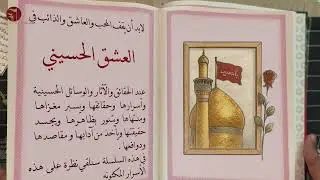 لابد أن يقف المحب والعاشق والذائب في
العشق الحسيني
عند الحقائق والآثار والوسائل الحسينية
وأسرارها وحقائقها وسبر مغزاها
ومعناها وستور بظاهرها ويجسد
حقيقتها ويأخذ من آدابها و مقاصدها
ودوافعها .
في هذه السلسلة سنلقي نظرة على هذه
الأسرار المكنونه